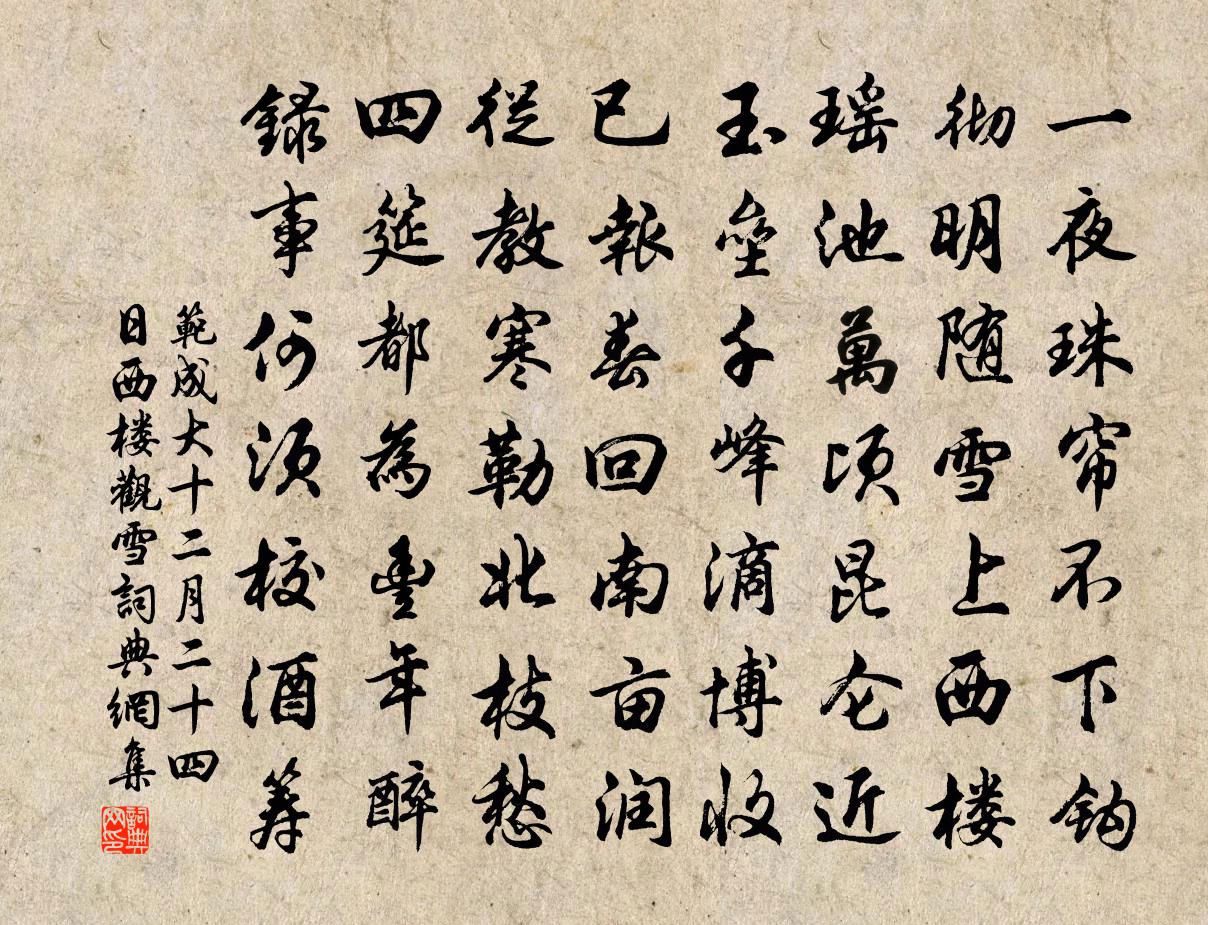 一夜珠帘不下钩
彻明随雪上西楼
瑶池萬顷昆仑近
玉垒千峰滴博收
已報春回南亩润
從教寒勒北枝愁
四筵都為豊年醉
録事何须校酒筹
範成大十二月二十四
日西楼觀雪詞典網集
詞典網印